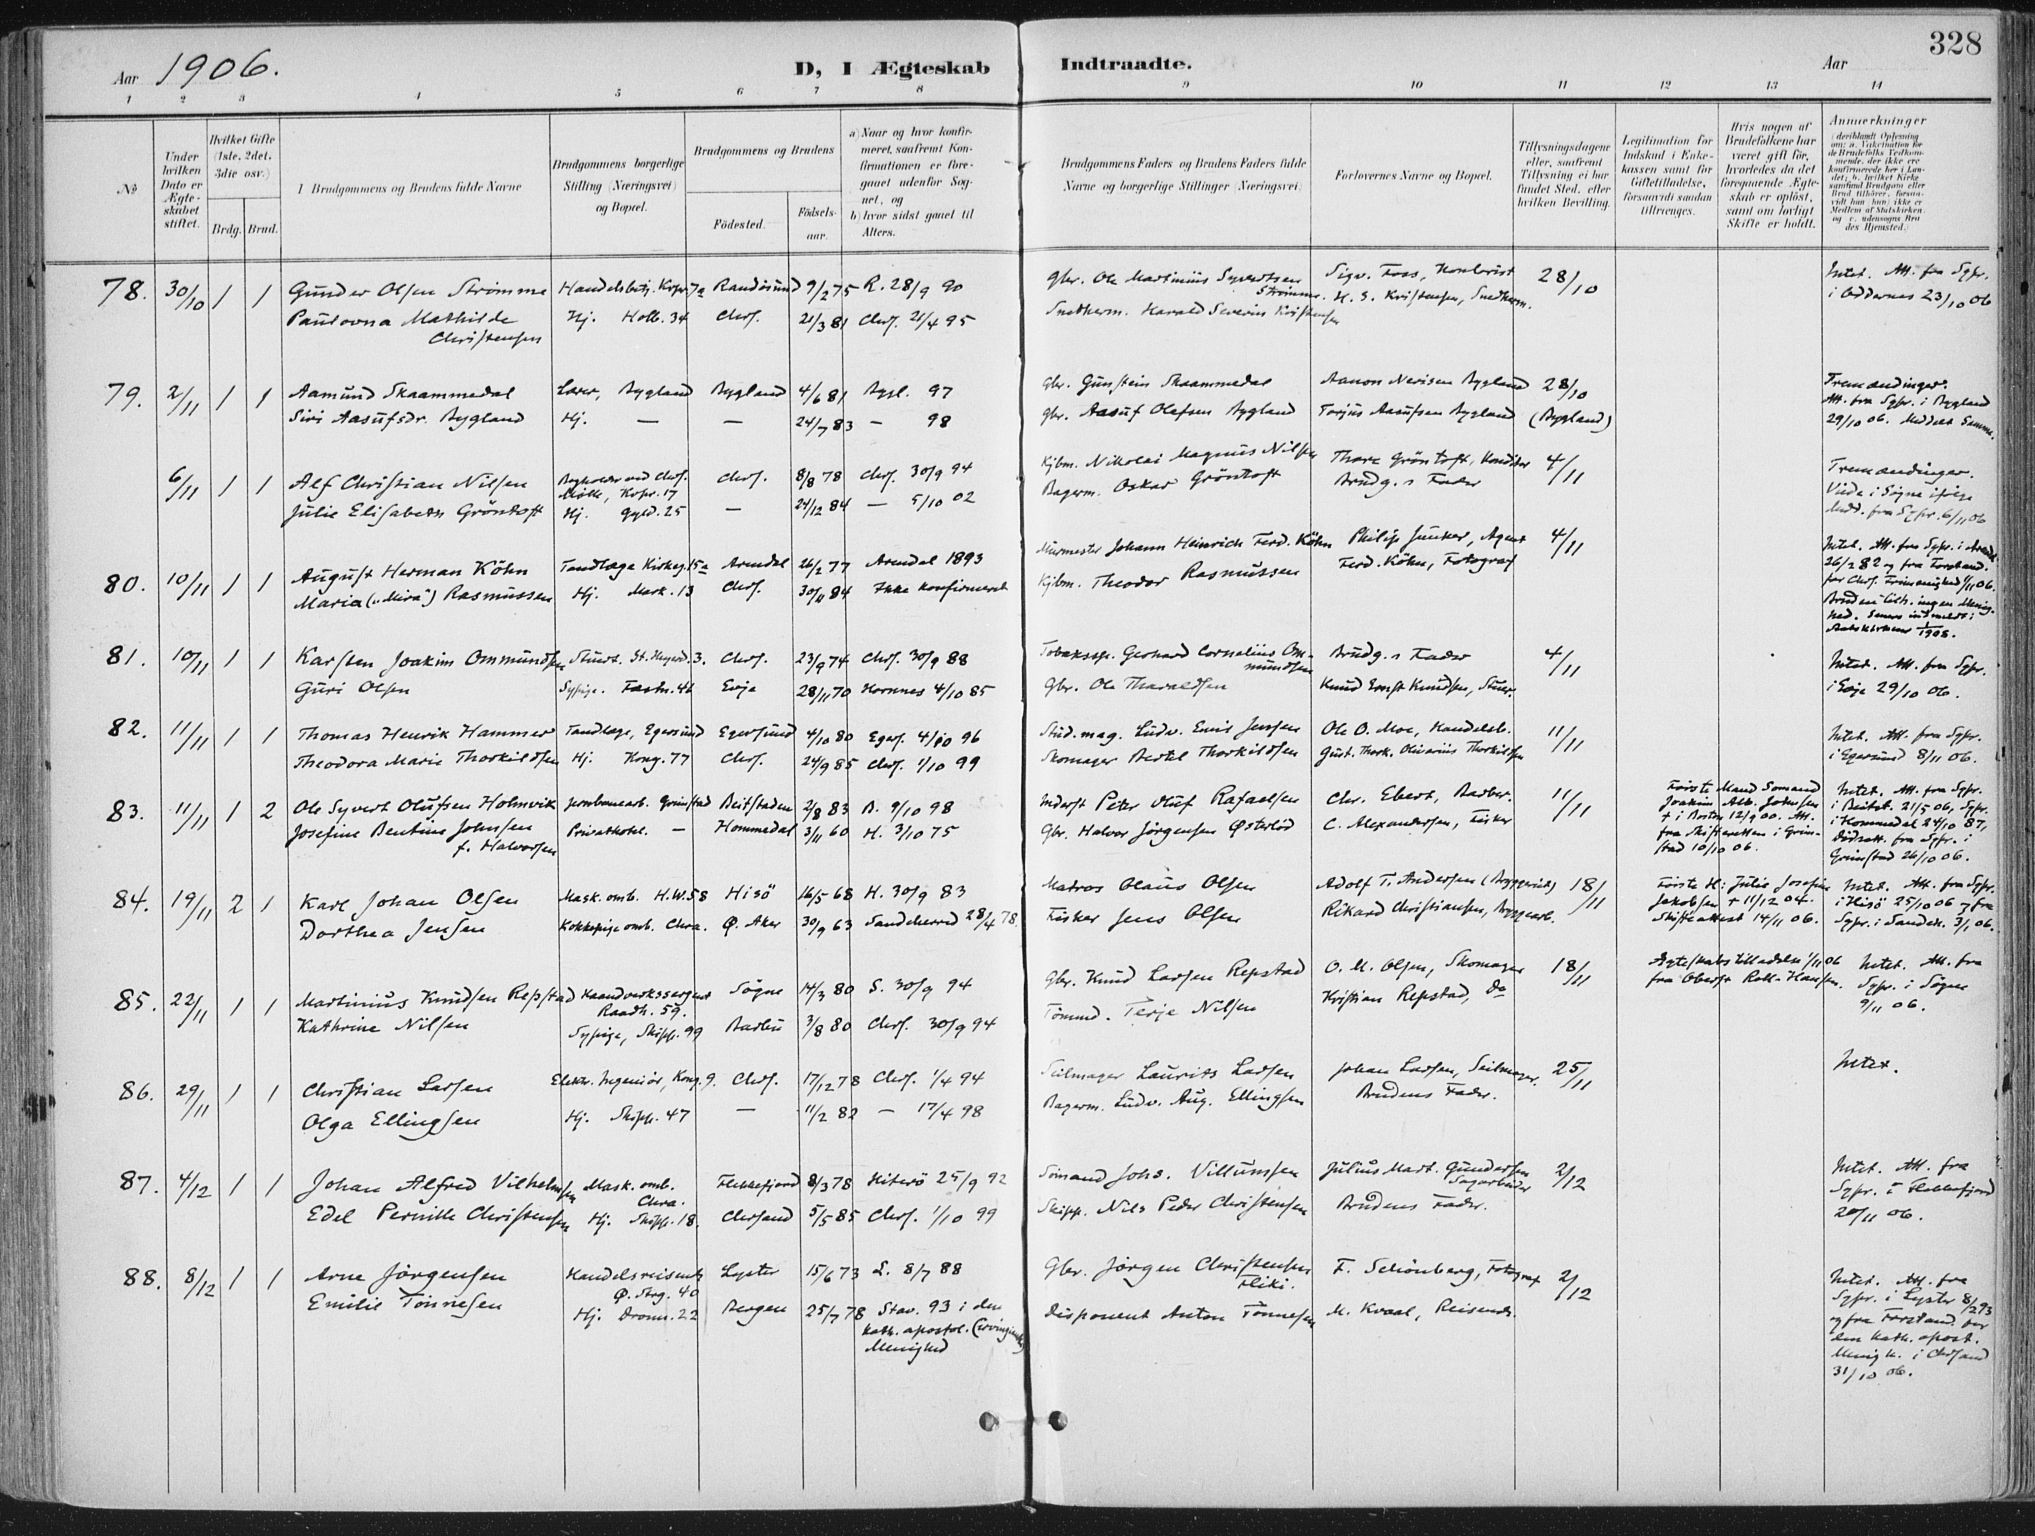 328
Aar 1906.
D, I Ægteskab Indtraadte.
Aar
1 2 3 4 5 6 7 8 9 10 11 12 13 14
No
Under hvilken Dato er Ægteskabet stiftet.
Hvilket Gifte (1ste, 2det, 3die osv.)
Brdg. Brud.
Brudgommens og Brudens fulde Navne
Brudgommens borgerlige Stilling (Næringsvei) og Bopæl.
Brudgommens og Brudens
Fødested.
Fødselsaar.
a) Naar og hvor konfirmeret, saafremt Konfirmationen er foregaaet udenfor Sognet, og
b) hvor sidst gaaet til Alters.
Brudgommens Faders og Brudens Faders fulde Navne og borgerlige Stillinger (Næringsvei)
Forlovernes Navne og Bopæl.
Tillysningsdagene eller, saafremt Tillysning ei har fundet Sted, efter hvilken Bevilling.
Legitimation for Indskud i Enkekassen samt for Giftetilladelse, forsaavidt saadan tiltrænges.
Hvis nogen af Brudefolkene har været gift før, hvorledes da det foregaaende Ægteskab er opløst, samt om lovligt Skifte er holdt.
Anmærkninger
78. 30/10 1 1 Gunder Olsen Strømme Handelsbetj. Kopr. 7a Randøsund 9/2 75 R. 28/9 90 gbr. Ole Martinius Syvertsen Strømme. Sigv. Foss, Kontorist 28/10 Intet. Att. fra Sgpr. i Oddernes 23/10 06
Paulovna Mathilde Christensen Hj. Holb. 34 Chrs. 21/3 81 Chrs. 21/4 95 Snedkerm. Harald Severin Kristensen H. S. Kristensen, Snedkerm.
79. 2/11 1 1 Aamund Skaammedal Lærer, Bygland Bygland 4/6 81 Bygl. 97 Gbr. Gunstein Skaammedal Aanon Nerisen Bygland 28/10 (Bygland) Tremændinger. Att. fra Sgpr. i Bygland 29/10 06. Meddelt Samme.
Siri Aasufsdr. Bygland Hj. — — 24/7 83 — 98 gbr. Aasuf Olefsen Bygland Torjus Aasufsen Bygland
6/11 1 1 Alf Christian Nilsen Bogholder ved Chrs. Mølle, Kopr. 17 Chrs. 8/8 78 Chrs. 30/9 94 Kjbm. Nikolai Magnus Nilsen Thore Gröntoft, Konditor 4/11 Tremændinger. Viede i Søgne ifølge Medd. fra Sgpr. 6/11 06
Julie Elisabeth Gröntoft Hj. Gyld. 25 — 24/12 84 — 5/10 02 Bagerm. Oskar Gröntoft Brudg.s Fader
80. 10/11 1 1 August Herman Köhn Tandlæge Kirkeg. 15a Arendal 26/2 77 Arendal 1893 Murmester Johann Heinrich Ferd. Köhn Philip Junker, Agent 4/11 Intet. Att. fra Sgpr. i Arendal 26/2 82 og fra Forstand. for Chrs. Frimenighed 1/11 06. Bruden tilh. ingen Menighed. Senere indmeldt i Statskirken 1/1908.
Maria ("Mira") Rasmussen Hj. Mark. 13 Chrs. 30/11 84 Ikke konfirmeret Kjbm. Theodor Rasmussen Ferd. Köhn, Fotograf
81. 10/11 1 1 Karsten Joakim Ommundsen Stuert. St. Heyerd. 3. Chrs. 23/9 74 Chrs. 30/9 88 Tobakssp. Gerhard Cornelius Ommundsen Brudg.s Fader 4/11 Intet. Att. fra Sgpr. i Evje 29/10 06.
Guri Olsen Sypige. Fæstn. 46 Evje 28/11 70 Hornnes 4/10 85 Gbr. Ole Tharaldsen Knud Ernst Knudsen, Stuer.
82. 11/11 1 1 Thomas Henrik Hammer Tandlæge, Egersund Egersund 4/10 80 Egers. 4/10 96 Stud. mag. Ludv. Emil Jenssen Ole O. Moe, Handelsb. 11/11 Intet. Att. fra Sgpr. i Egersund 8/11 06.
Theodora Marie Thorkildsen Hj. Kong. 77 Chrs. 24/9 85 Chrs. 1/10 99 Skomager Bertel Thorkildsen Gust. Thork. Olivarius Thorkildsen
83. 11/11 1 2 Ole Syvert Olufsen Holmvik Jernbanearb. Grimstad Beitstaden 2/8 83 B. 9/10 98 Inderst Peter Oluf Rafaelsen Chr. Ebert, Barber. 11/11 Første Mand Sømand Joakim Alb. Johnsen † i Boston 12/9 00. Att. fra Skifteretten i Grimstad 10/10 06. Intet. Att. fra Sgpr. i Beitst. 21/5 06, Sgpr. i Hommedal 24/10 87, Dødsatt. fra Sgpr. i Grimstad 26/10 06.
Josefine Bentine Johnsen f. Halvorsen Privathotel. — Hommedal 3/11 60 H. 3/10 75 Gbr. Halvor Jörgensen Østerlöd C. Alexandersen, Fisker
84. 19/11 2 1 Karl Johan Olsen Mask. omb. H.W. 58 Hisö 16/5 68 H. 30/9 83 Matros Olaus Olsen Adolf T. Andersen (Byggerist) 18/11 Første H: Julie Josefine Jakobsen † 11/12 04. Skifteattest 14/11 06. Intet. Att. fra Sgpr. i Hisö 25/10 06 og fra Sgpr. i Sandeh. 3/1 06.
Dorthea Jensen Kokkepige omb. Chra. Ø. Aker 30/9 63 Sandeherred 28/4 78. Fisker Jens Olsen Rikard Christiansen, Byggearb.
85. 22/11 1 1 Martinius Knudsen Repstad Haandverkssergent Raadh. 59. Søgne 14/3 80 S. 30/9 94 Gbr. Knud Larsen Repstad O. M. Olsen, Skomager 18/11 Ægteskabstilladelse 1/11 06 fra Oberst Roll-Hansen. Intet. Att. fra Sgpr. i Søgne 9/11 06.
Kathrine Nilsen Sypige, Skipp. 99 Barbu 3/8 80 Chrs. 30/9 94 Tömmd. Terje Nilsen Kristian Repstad, Do
86. 29/11 1 1 Christian Larsen Elektr. Ingeniör, Kong. 9. Chrs. 17/12 78 Chrs. 1/4 94 Seilmager Laurits Larsen Johan Larsen, Seilmager. 25/11 Intet.
Olga Ellingsen Hj. Skipp. 47 — 11/2 82 — 17/4 98 Bagerm. Ludv. Aug. Ellingsen Brudens Fader.
87. 4/12 1 1 Johan Alfred Vilhelmsen Mask. omb. Chra. Flekkefjord 8/3 78 Hiterö 25/9 92 Sömand Johs. Villumsen Julius Mart. Gundersen Sagarbeider 2/12 Intet. Att. fra Sgpr. i Flekkefjord 20/11 06.
Edel Pernille Christensen Hj. Skipp. 18. Chrsand 5/5 85 Chrs. 1/10 99 Skipp. Nils Peder Christensen Brudens Fader.
88. 8/12 1 1 Arne Jörgensen Handelsreisende Ø. Strg. 40 Lyster 15/6 73 L. 8/7 88 Gbr. Jörgen Christensen Fliki. F. Schönberg, Fotograf 2/12 Intet. Att. fra Sgpr. i Lyster 8/2 93 og fra Forstand. for den kath. apost. Menigh. i Chrsand 31/10 06.
Emilie Tönnesen Hj. Dronn. 22 Bergen 25/7 78 Stav. 93 i den kath. apostol. (irvingianske) Menighed Disponent Anton Tönnesen M. Kvaal, Reisende.